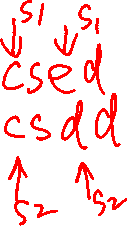 s1 s1
csed
csdd
s2 s2